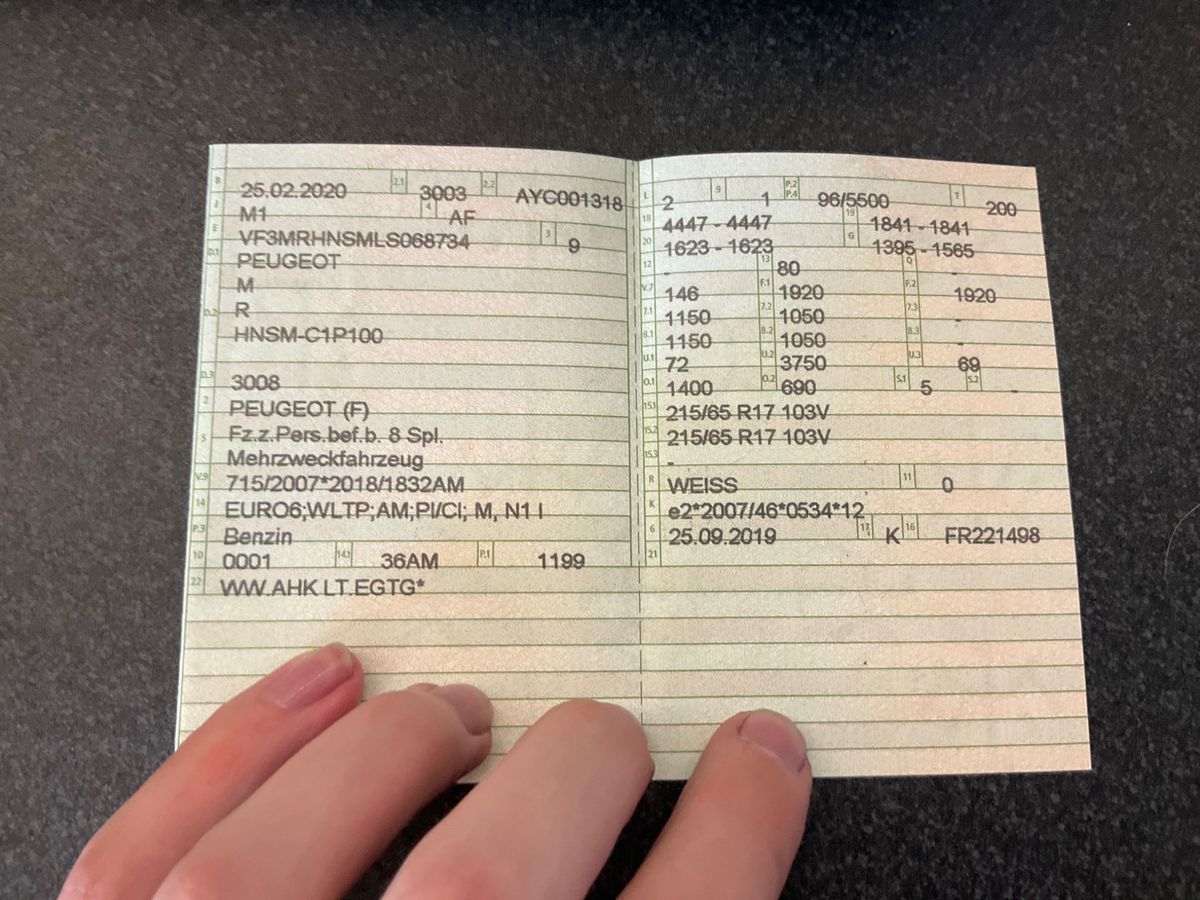 B 25.02.2020 2.1 3003 2.2 AYC001318
J M1 4 AF
E VF3MRHNSMLS068734 3 9
D.1 PEUGEOT
M
D.2 R
HNSM-C1P100
D.3 3008
2 PEUGEOT (F)
5 Fz.z.Pers.bef.b. 8 Spl.
Mehrzweckfahrzeug
V.9 715/2007*2018/1832AM
14 EURO6;WLTP;AM;PI/CI; M, N1 I
P.3 Benzin
10 0001 14.1 36AM P.1 1199
22 WW.AHK LT.EGTG*
L 2 9 1 P.2 P.4 96/5500 T 200
18 4447 - 4447 19 1841 - 1841
20 1623 - 1623 G 1395 - 1565
12 - 13 80 Q -
V.7 146 F.1 1920 F.2 1920
7.1 1150 7.2 1050 7.3 -
8.1 1150 8.2 1050 8.3 -
U.1 72 U.2 3750 U.3 69
O.1 1400 O.2 690 S.1 5 S.2 -
15.1 215/65 R17 103V
15.2 215/65 R17 103V
15.3 -
R WEISS 11 0
K e2*2007/46*0534*12
6 25.09.2019 17 K 16 FR221498
21